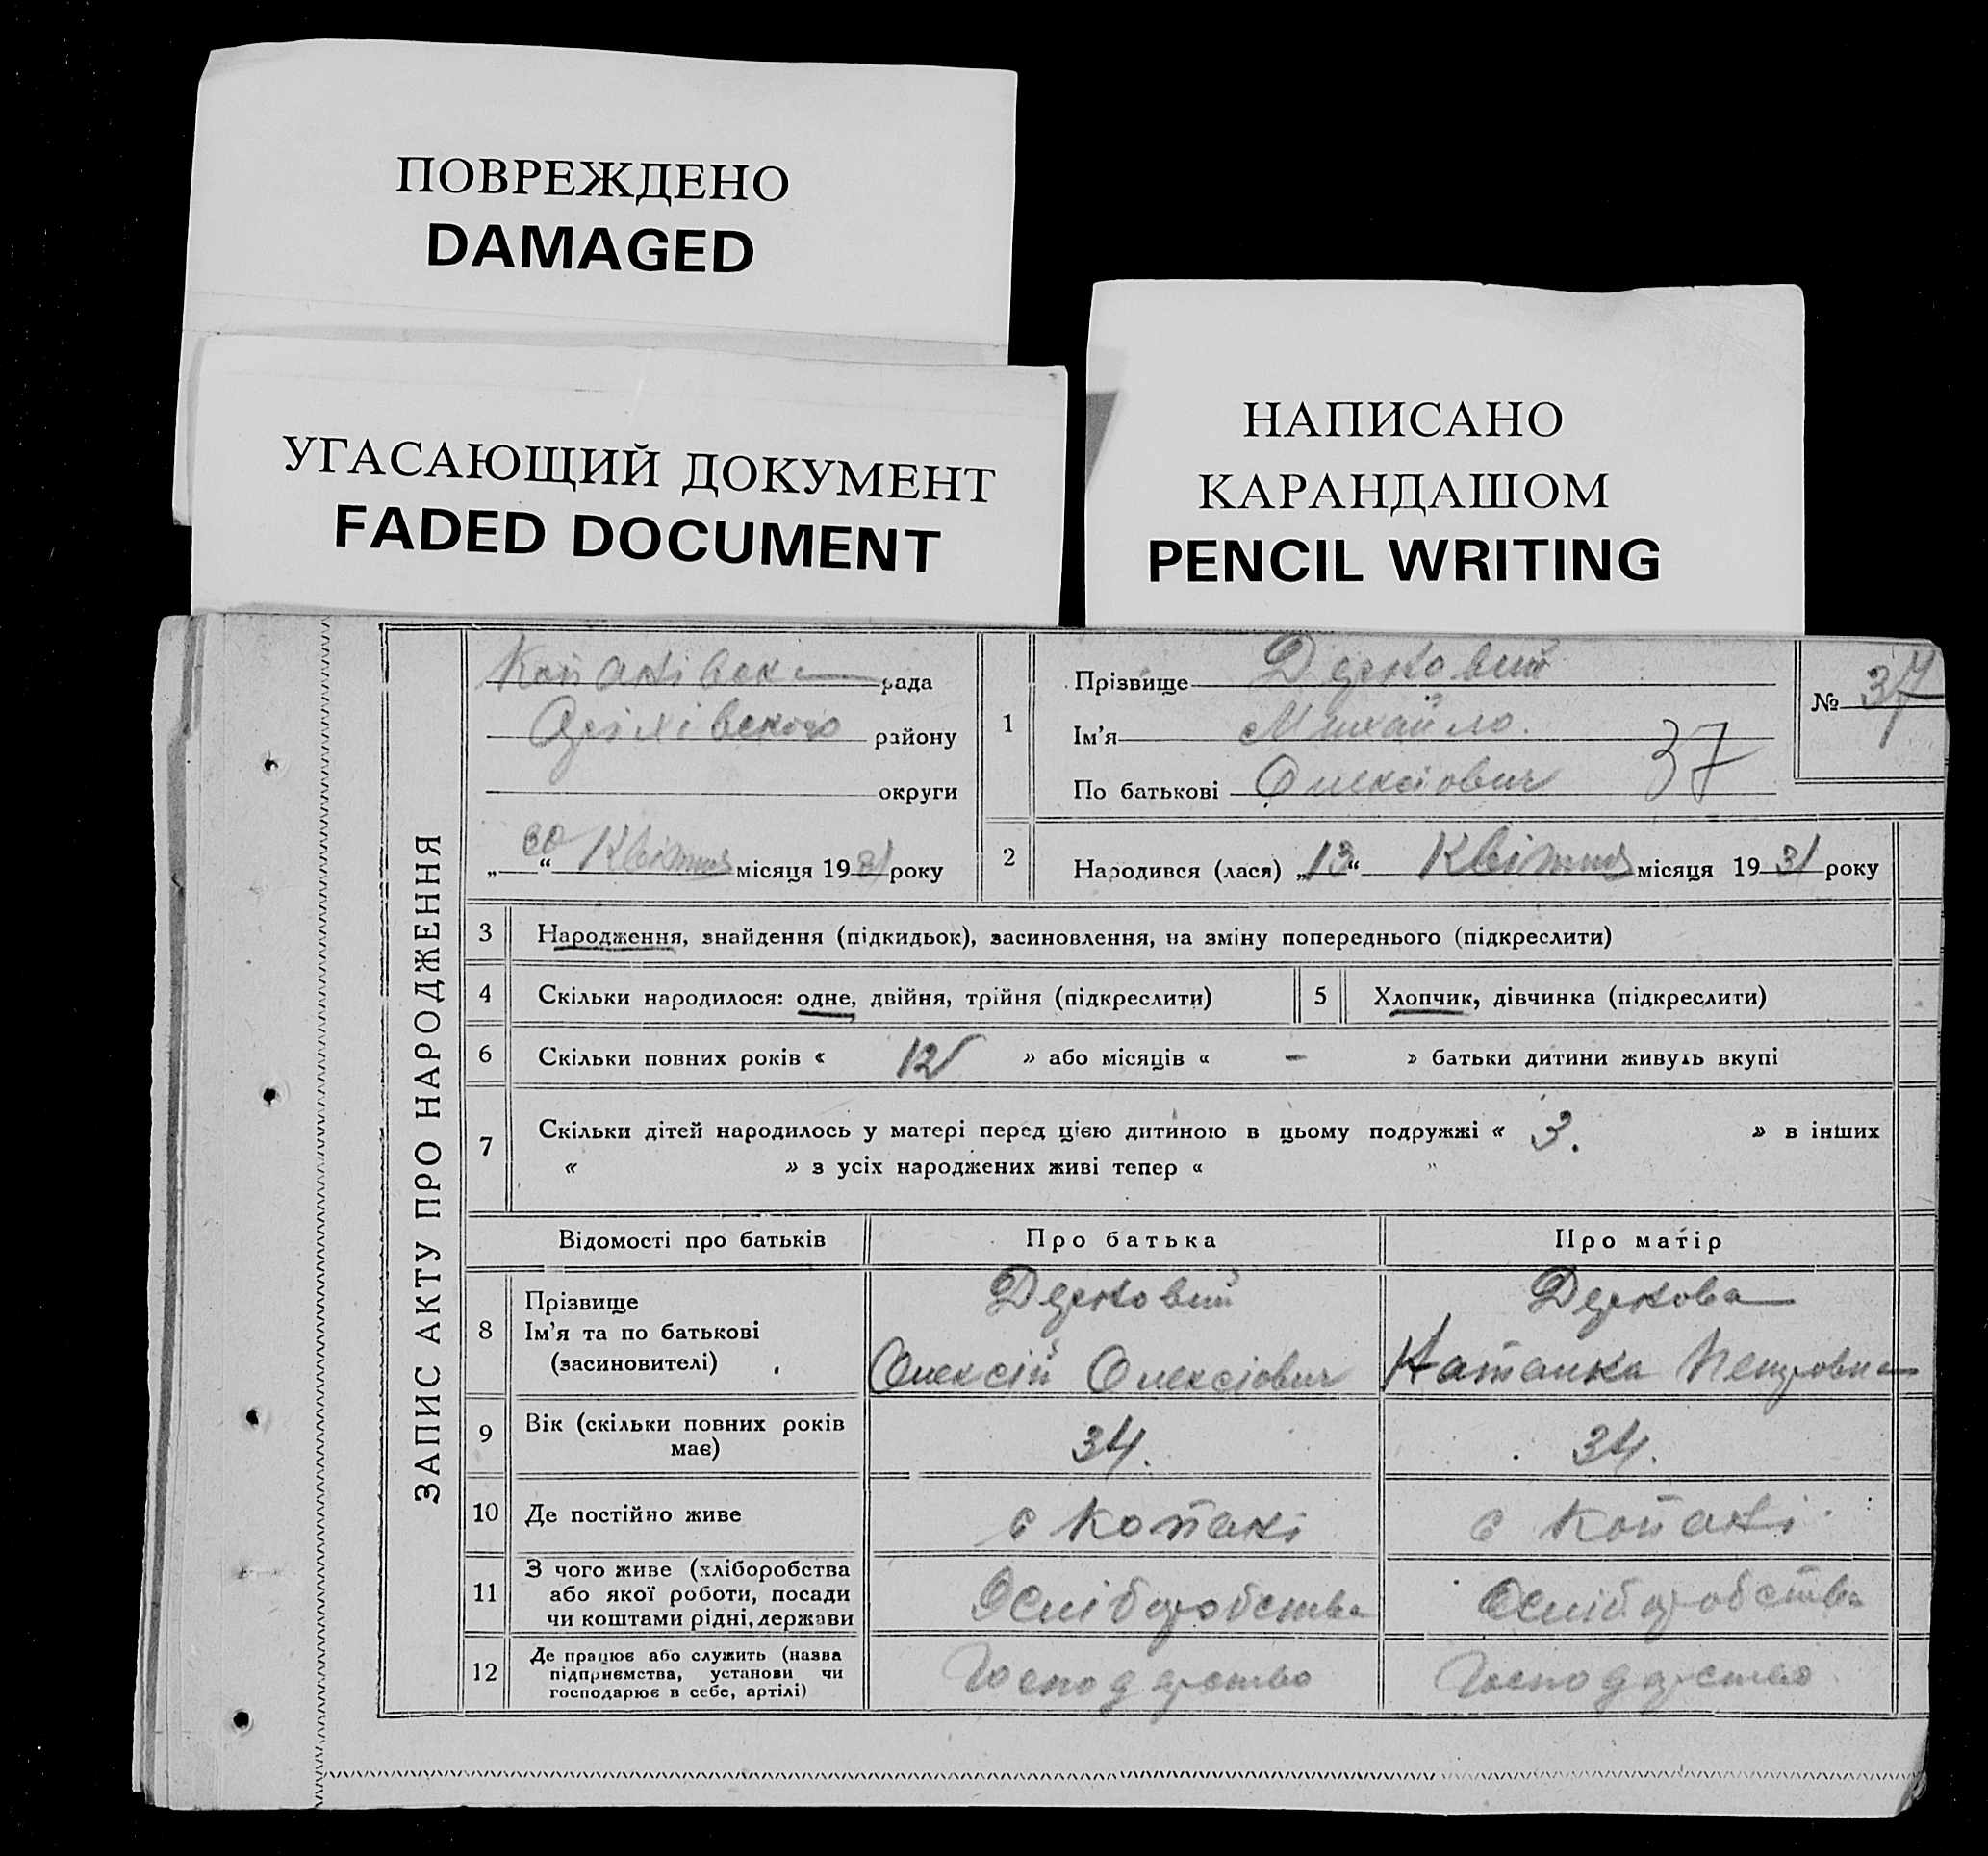 ПОВРЕЖДЕНО
DAMAGED
УГАСАЮЩИЙ ДОКУМЕНТ
FADED DOCUMENT
НАПИСАНО
КАРАНДАШОМ
PENCIL WRITING
ЗАПИС АКТУ ПРО НАРОДЖЕННЯ
Копанівська рада
Оріхівського району
округи
„30“ Квітня місяця 1931 року
1
Прізвище
Ім'я Михайло.
По батькові Олексіович
37
№ 37
2 Народився (лася) „13“ Квітня місяця 1931 року
3 Народження, знайдення (підкидьок), засиновлення, на зміну попереднього (підкреслити)
4 Скільки народилося: одне, двійня, трійня (підкреслити)
5 Хлопчик, дівчинка (підкреслити)
6 Скільки повних років « 12 » або місяців « – » батьки дитини живуть вкупі
7 Скільки дітей народилось у матері перед цією дитиною в цьому подружжі « 3. » в інших
« » з усіх народжених живі тепер « "
Відомості про батьків Про батька Про матір
8 Прізвище
Ім'я та по батькові
(засиновителі)
Олексій Олексіович
Петровна
9 Вік (скільки повних років
має)
34. 34.
10 Де постійно живе с Копані с Копані
11 З чого живе (хліборобства
або якої роботи, посади
чи коштами рідні, держави
12 Де працює або служить (назва
підприємства, установи чи
господарює в себе, артілі)
Господарство Господарство